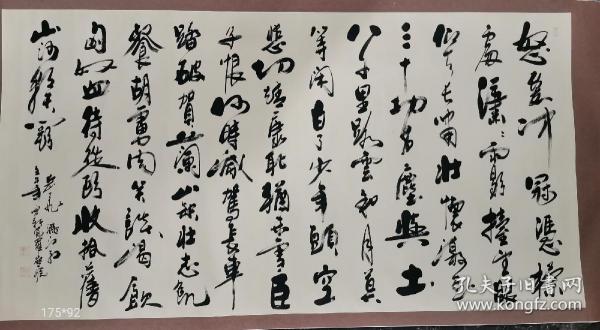 怒发冲冠凭栏
处潇潇雨歇抬望眼
仰天长啸壮怀激烈
三十功名尘与土
八千里路云和月莫
等闲白了少年头空
悲切靖康耻犹未雪臣
子恨何时灭驾长车
踏破贺兰山缺壮志饥
餐胡虏肉笑谈渴饮
匈奴血待从头收拾旧
山河朝天阙
岳飞满江红
175*92
孔夫子旧书网
www.kongfz.com